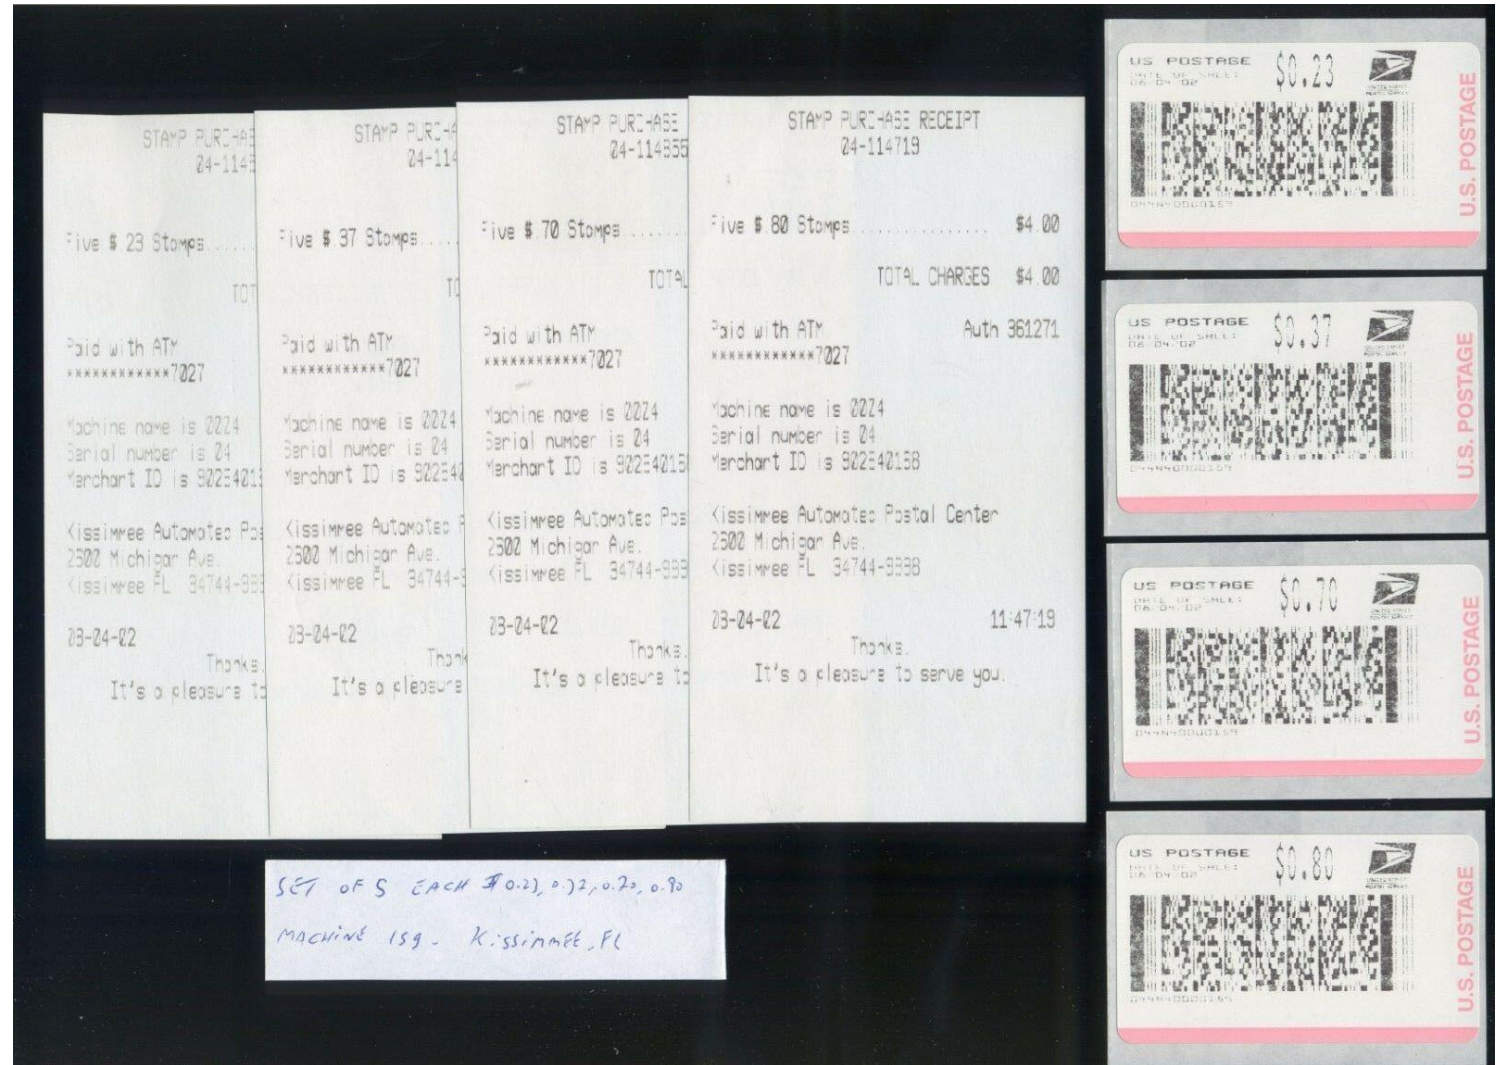 STAMP PURCHASE
04-114
Five $ 23 Stamps.....
TOT
Paid with ATM
************7027
Machine name is 0224
Serial number is 04
Merchant ID is 90254015
Kissimmee Automated Pos
2600 Michigan Ave.
Kissimmee FL 34744-999
03-04-02
Thanks.
It's a pleasure to
STAMP PURCHA
04-114
Five $ 37 Stamps....
TO
Paid with ATM
************7027
Machine name is 0224
Serial number is 04
Merchant ID is 902540
Kissimmee Automated P
2600 Michigan Ave.
Kissimmee FL 34744-9
03-04-02
Thank
It's a pleasure
STAMP PURCHASE
04-114
Five $ 70 Stamps.......
TOTAL
Paid with ATM
************7027
Machine name is 0224
Serial number is 04
Merchant ID is 90254015
Kissimmee Automated Pos
2600 Michigan Ave.
Kissimmee FL 34744-999
03-04-02
Thanks.
It's a pleasure to
STAMP PURCHASE RECEIPT
04-114719
Five $ 80 Stamps................ $4.00
TOTAL CHARGES $4.00
Paid with ATM Auth 361271
************7027
Machine name is 0224
Serial number is 04
Merchant ID is 902540158
Kissimmee Automated Postal Center
2600 Michigan Ave.
Kissimmee FL 34744-9998
03-04-02 11:47:19
Thanks.
It's a pleasure to serve you.
SET OF 5 EACH $0.23, 0.37, 0.70, 0.80
MACHINE 159 - KISSIMMEE, FL
US POSTAGE $0.23
DATE OF SALE:
06/04/02
UNITED STATES
POSTAL SERVICE
044N40000159
U.S. POSTAGE
US POSTAGE $0.37
DATE OF SALE:
06/04/02
UNITED STATES
POSTAL SERVICE
044N40000159
U.S. POSTAGE
US POSTAGE $0.70
DATE OF SALE:
06/04/02
UNITED STATES
POSTAL SERVICE
044N40000159
U.S. POSTAGE
US POSTAGE $0.80
DATE OF SALE:
06/04/02
UNITED STATES
POSTAL SERVICE
U.S. POSTAGE